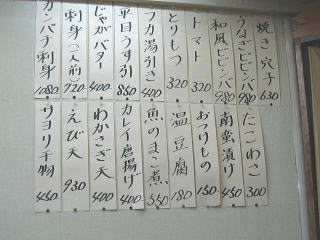 焼き穴子 630
うなぎビビンバ 980
和風ビビンバ 980
トマト 320
とりもつ 320
フカ湯引き 400
平目うす引 850
じゃがバター 400
刺身(一人前) 720
カンパチ刺身 1080
たこわさ 300
南蛮漬け 450
おつけもの 150
温豆腐 180
魚のまこ煮 550
カレイ唐揚げ 400
わかさぎ天 400
えび天 930
サヨリ干物 450